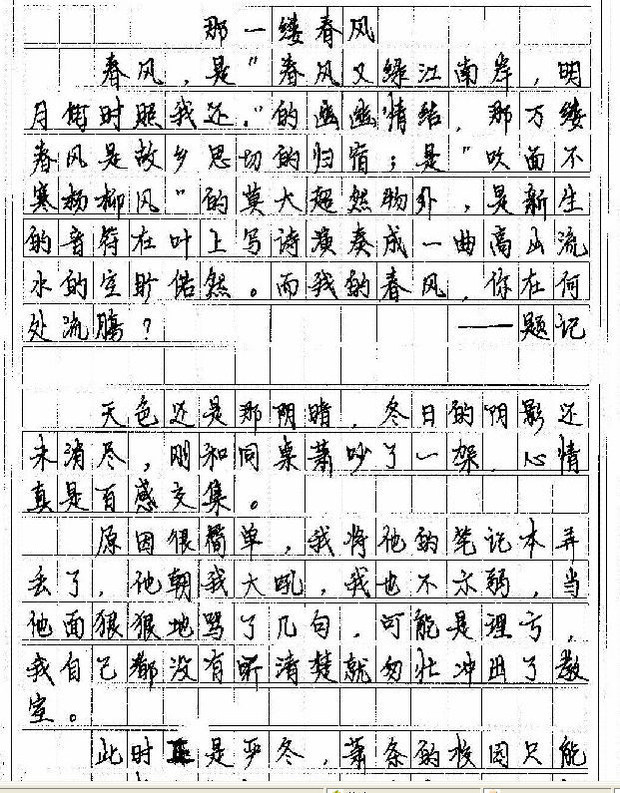 那一缕春风
春风，是"春风又绿江南岸，明
月何时照我还."的幽幽情结，那万缕
春风是故乡思切的归宿；是"吹面不
寒杨柳风"的莫大超然物外，是新生
的音符在叶上写诗演奏成一曲高山流
水的空旷偌然。而我的春风，你在何
处流膓？ ——题记
天色还是那阴晴，冬日的阴影还
未消尽，刚和同桌萧吵了一架，心情
真是百感交集。
原因很简单，我将他的笔记本弄
丢了，他朝我大吼，我也不示弱，当
他面狠狠地骂了几句，可能是理亏，
我自己都没有听清楚就匆忙冲出了教
室。
此时正是严冬，萧条的校园只能